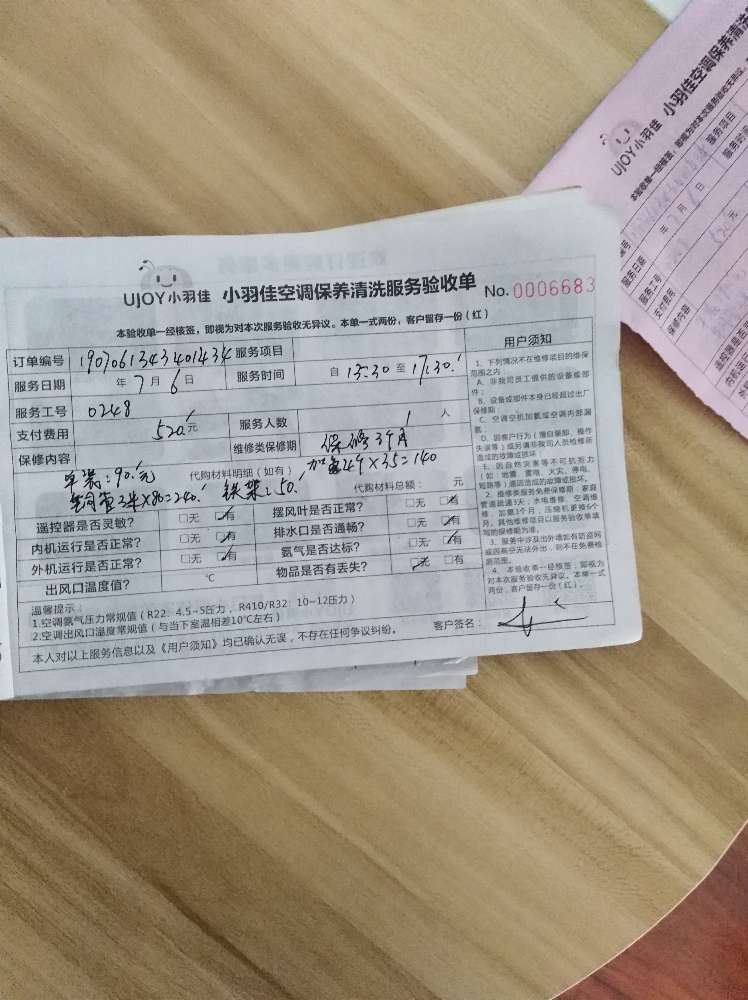 UJOY小羽佳 小羽佳空调保养清洗服务验收单 No.0006683
本验收单一经核签，即视为对本次服务验收无异议。本单一式两份，客户留存一份（红）
订单编号 190706134340 1434 服务项目
服务日期 年7月6日 服务时间 自13:30至17:30
服务工号 0248 服务人数 1人
支付费用 520元 维修类保修期 保修3个月
保修内容
单装:90元 代购材料明细（如有） 加氟4个×35=140
铜管3米×80=240 铁架:50 代购材料总额： 元
遥控器是否灵敏？ □无 □有 摆风叶是否正常？ □无 □有
内机运行是否正常？ □无 □有 排水口是否通畅？ □无 □有
外机运行是否正常？ □无 □有 氨气是否达标？ □无 □有
出风口温度值？ ℃ 物品是否有丢失？ □无 □有
温馨提示：
1.空调氟气压力常规值（R22：4.5~5压力，R410/R32：10~12压力）
2.空调出风口温度常规值（与当下室温相差10℃左右）
本人对以上服务信息以及《用户须知》均已确认无误，不存在任何争议纠纷。 客户签名：
用户须知
1、下列情况不在维修项目的维保
范围之内：
A、非我司员工提供的设备维部
件；
B、设备或部件本身已经超过出厂
保修期；
C、空调空机加氟或空调内部漏
氟；
D、因客户行为（擅自装卸、操作
失误等）或另请非我司人员维修所
造成的故障或损坏；
E、因自然灾害等不可抗拒力
（如：地震、雷电、火灾、停电、
短路等）造成的故障或损坏。
2、维修类服务免费保修期：家庭
管道疏通3天，水电维修、空调维
修、加氟3个月，压缩机更换6个
月，其他维修项目以服务验收单填
写的保修期为准。
3、服务中涉及出外墙如有防盗网
或因高空无法外出，则不在免费检
测范围。
4、本验收单一经核签，即视为
对本次服务验收无异议。本单一式
两份，客户留存一份（红）。
UJOY小羽佳 小羽佳空调保养清洗
本验收单一经核签，即视为对本次服务验收无异议。
服务项目
服务日期 年 月 日
服务工号
支付费用
保修内容